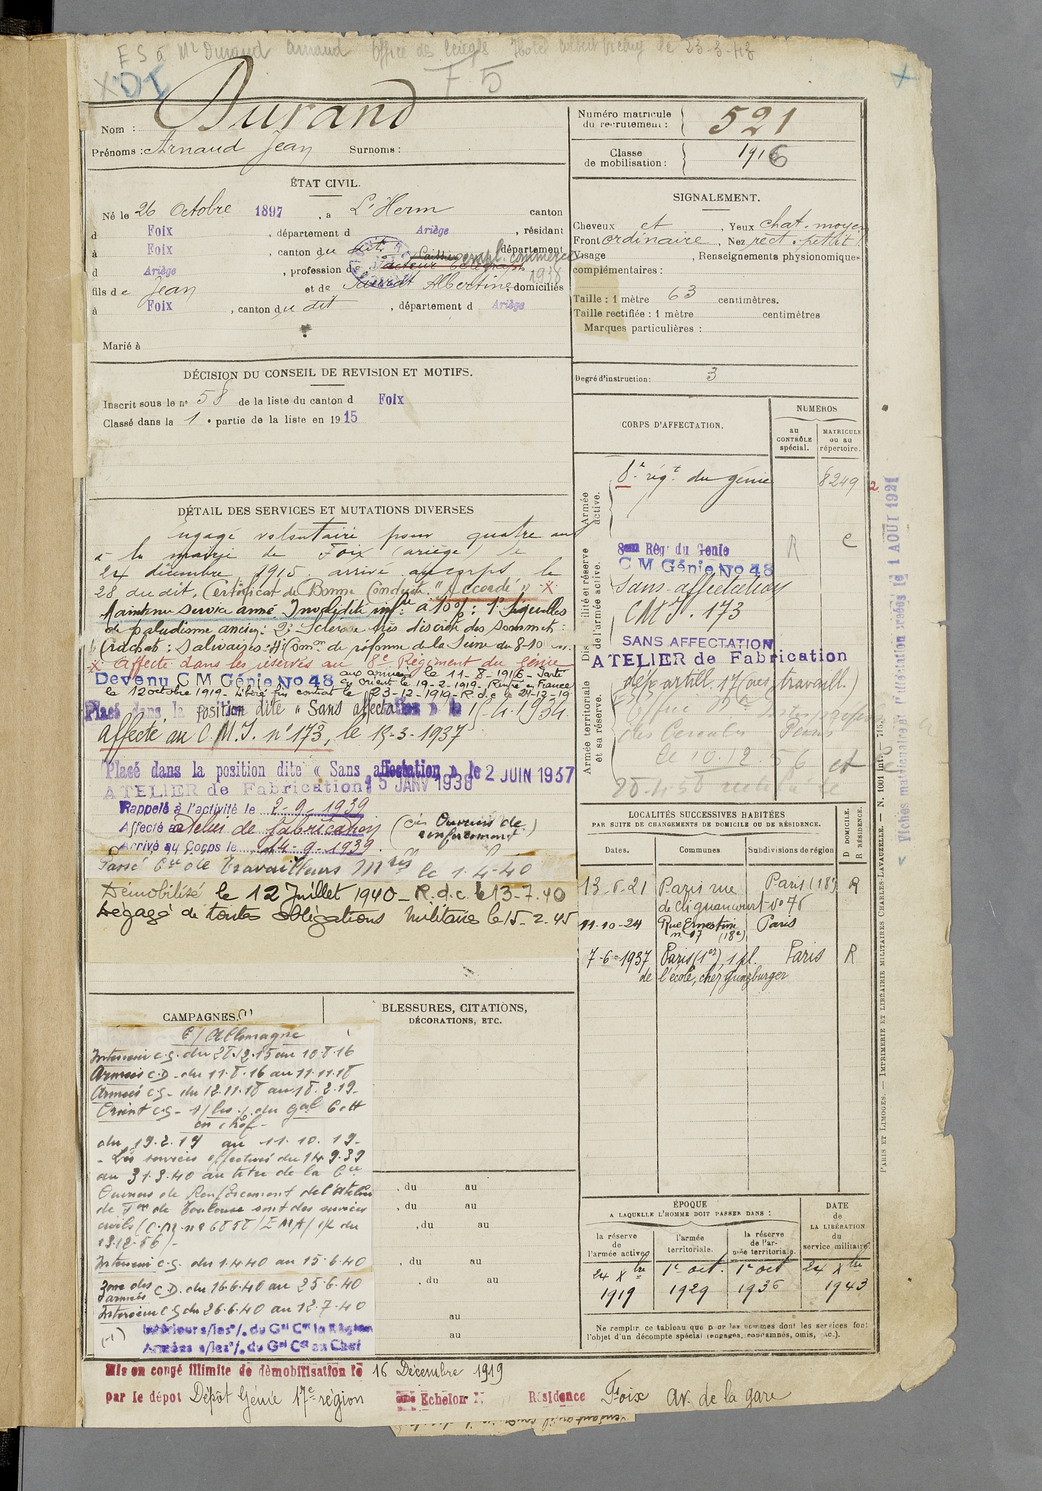 F 5
Nom : Durand
Prénoms : Arnaud Jean Surnoms :
Numéro matricule du recrutement : 521
Classe de mobilisation : 1916
ÉTAT CIVIL.
Né le 26 Octobre 1897, à L'Herm canton
d Foix, département d Ariège, résidant
à Foix, canton du dit département
d Ariège, profession de empl. commerce 1938
fils de Jean et de Albertine, domiciliés
à Foix, canton du dit, département d Ariège
Marié à
SIGNALEMENT.
Cheveux ct, Yeux chat. moyen
Front ordinaire, Nez rect. petit
Visage , Renseignements physionomiques
complémentaires :
Taille : 1 mètre 63 centimètres.
Taille rectifiée : 1 mètre centimètres
Marques particulières :
Degré d'instruction : 3
DÉCISION DU CONSEIL DE REVISION ET MOTIFS.
Inscrit sous le n° 58 de la liste du canton d Foix
Classé dans la 1 e partie de la liste en 1915
DÉTAIL DES SERVICES ET MUTATIONS DIVERSES
Engagé volontaire pour quatre ans
à la mairie de Foix (Ariège) le
24 décembre 1915 arrivé au corps le
28 du dit. Certificat de Bonne Conduite "Accordé" X
Maintenu service armé. Invalidité inf.re à 10% : 1° Séquelles
de paludisme ancien : 2° Sclérose très discrète des sommets :
Crachats : salivaires : Con.on de réforme de la Seine du 8-10
X Affecté dans les réserves au 8e Régiment du génie
Devenu C M Génie No 48 aux armées le 11-8-1916 - Parti
en Orient le 19-2-1919. Rentré en France
le 12 octobre 1919 - Libéré fin contrat le 23-12-1919 - R.d.c le 24-12-19
Placé dans la position dite « Sans affectation » le 15-4-1934
Affecté au C.M.I. n° 173, le 15-3-1937
Placé dans la position dite « Sans affectation » le 2 JUIN 1937
ATELIER de Fabrication 15 JANV 1938
Rappelé à l'activité le 2-9-1939
Affecté atelier de fabrication (Cie Ouvriers de renforcement)
Arrivé au Corps le 14-9-1939
Passé Cie de Travailleurs Mres le 1-4-40
Démobilisé le 12 Juillet 1940 - R.d.c le 13-7-40
Dégagé de toutes obligations militaires le 15-2-45
CORPS D'AFFECTATION.
NUMÉROS
au CONTRÔLE spécial.
MATRICULE ou au répertoire.
Armée active.
8e rég.t du génie 8249
Disponibilité et réserve de l'armée active.
8eme Rég' du Génie R C
C M Génie No 48
Sans affectation
CMI. 173
SANS AFFECTATION
ATELIER de Fabrication
Armée territoriale et sa réserve.
LOCALITÉS SUCCESSIVES HABITÉES
PAR SUITE DE CHANGEMENTS DE DOMICILE OU DE RÉSIDENCE.
Dates. Communes Subdivisions de région D DOMICILE. R RÉSIDENCE.
13-6-21 Paris rue Paris (18e) R
de Clignancourt n° 76
11-10-24 Rue Ernestine Paris
n° 17 (18e)
7-6-1937 Paris (1er), 1 pl. Paris R
de l'école, chez Gunzburger
CAMPAGNES.(1)
C/ Allemagne
Intérieur c.s. du 28.12.15 au 10.8.16
Armées C.D - du 11.8.16 au 11.11.18
Armées c.s - du 12.11.18 au 18.2.19
Orient c.s - s/les o/. du Gal Ctt
en chef
du 19.2.19 au 11.10.19
- Les services effectués du 14.9.39
au 31.3.40 au titre de la Cie
Ouvriers de Renforcement de l'Atelier
de Fon de Toulouse sont des services
civils
Intérieur c.s. du 1.4.40 au 15.6.40
Zone des armées C.D. du 16.6.40 au 25.6.40
Intérieur CS du 26.6.40 au 12.7.40
(1) Intérieur s/les o/. du Gal Ct la Région
Armées s/les o/. du Gal Ct en Chef
BLESSURES, CITATIONS,
DÉCORATIONS, ETC.
du au
du au
du au
du au
du au
au
au
ÉPOQUE
A LAQUELLE L'HOMME DOIT PASSER DANS :
la réserve de l'armée active
l'armée territoriale.
la réserve de l'armée territoriale.
DATE de LA LIBÉRATION du service militaire.
24 Xbre 1919
1er oct. 1929
1er oct 1936
24 Xbre 1943
Ne remplir ce tableau que pour les hommes dont les services font
l'objet d'un décompte spécial (engagés, condamnés, omis, etc.).
Mis en congé illimité de démobilisation le 16 Décembre 1919
par le dépot Dépôt Génie 17e région Echelon N° Résidence Foix av. de la gare
PARIS ET LIMOGES. — IMPRIMERIE ET LIBRAIRIE MILITAIRES CHARLES-LAVAUZELLE. — N. 1001